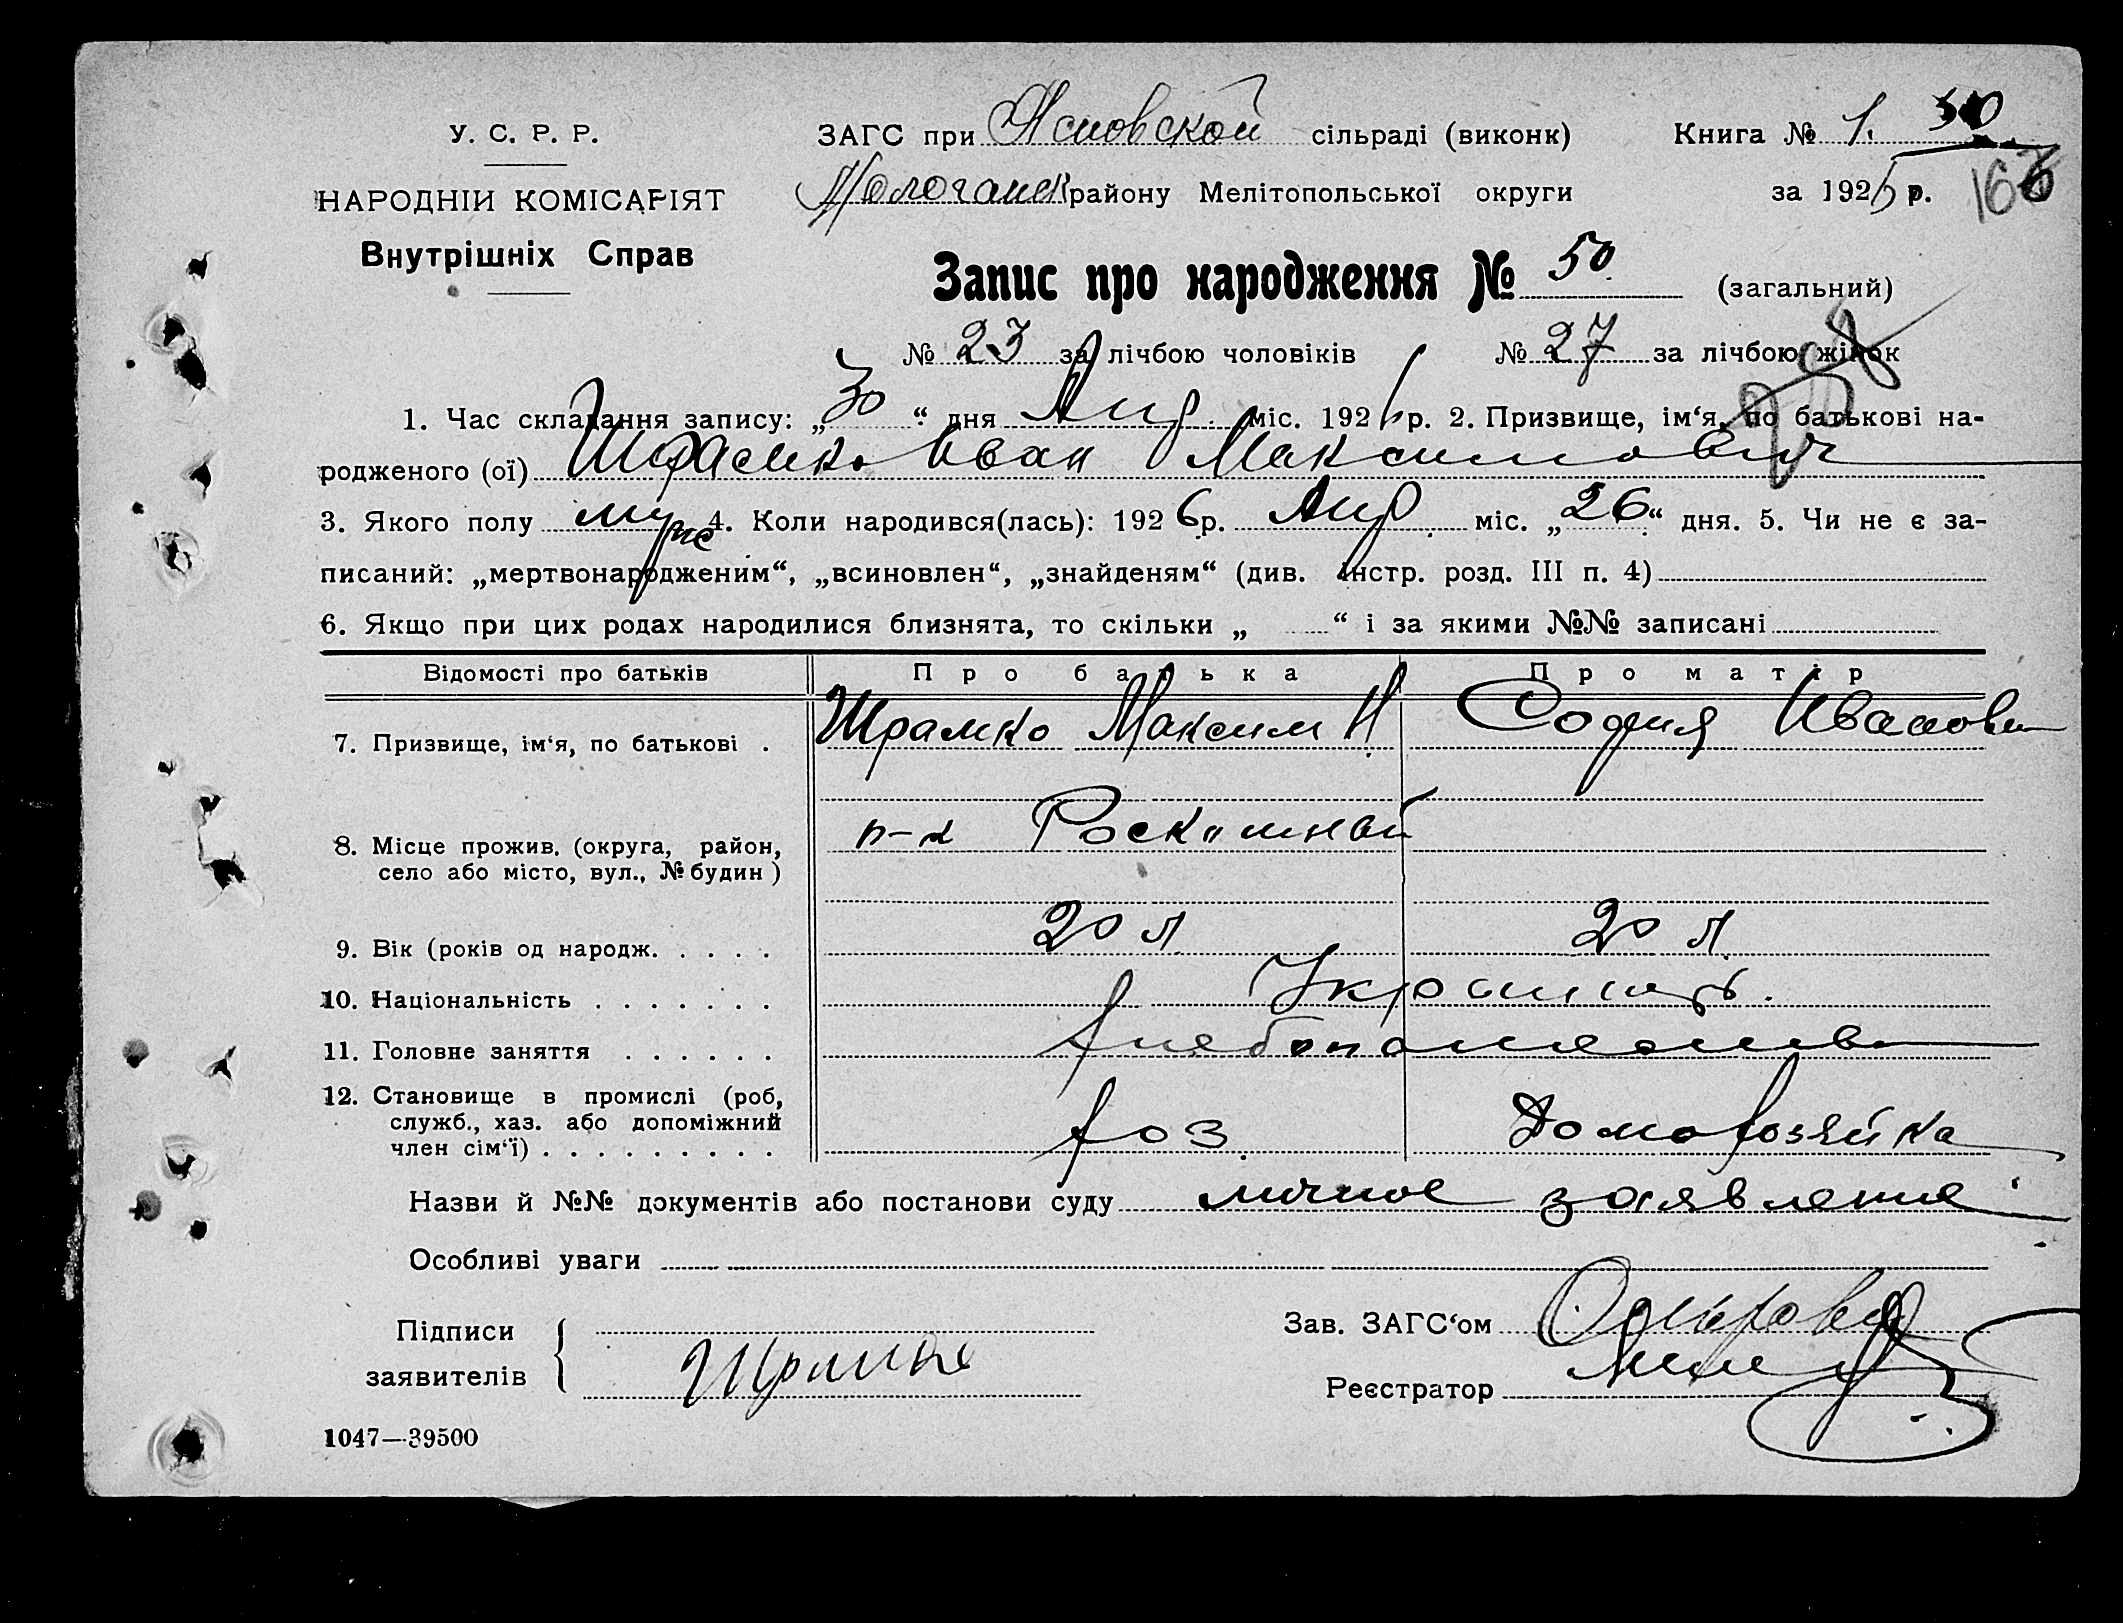 У. С. Р. Р.
НАРОДНІЙ КОМІСАРІЯТ
Внутрішніх Справ
ЗАГС при сільраді (виконк) Книга № 1. 50
району Мелітопольської округи за 192 р. 166
Запис про народження № 50 (загальний)
№ 23 за лічбою чоловіків № 27 за лічбою жінок
1. Час складання запису: „30“ дня Апр. міс. 1926 р. 2. Призвище, ім‘я, по батькові на-
родженого (ої) Шрамко Иван Максимович
3. Якого полу муж 4. Коли народився(лась): 1926 р. Апр. міс. „26“ дня. 5. Чи не є за-
писаний: „мертвонародженим“, „всиновлен“, „знайденям“ (див. інстр. розд. III п. 4)
6. Якщо при цих родах народилися близнята, то скільки „ “ і за якими №№ записані
Відомості про батьків Про батька Про матір
7. Призвище, ім‘я, по батькові . Шрамко Максим И. София Иванов
8. Місце прожив. (округа, район, село або місто, вул., № будин ) п-к Роскишный
9. Вік (років од народж. . . . . 20 л 20 л.
10. Національність . . . . . . .
11. Головне заняття . . . . . . Хлебопашество
12. Становище в промислі (роб, служб., хаз. або допоміжний член сім‘ї) . . . . . . . . . хоз. Домохозяйка
Назви й №№ документів або постанови суду личное заявление
Особливі уваги
Підписи заявителів { Шрамко
Зав. ЗАГС‘ом
Реєстратор
1047—39500